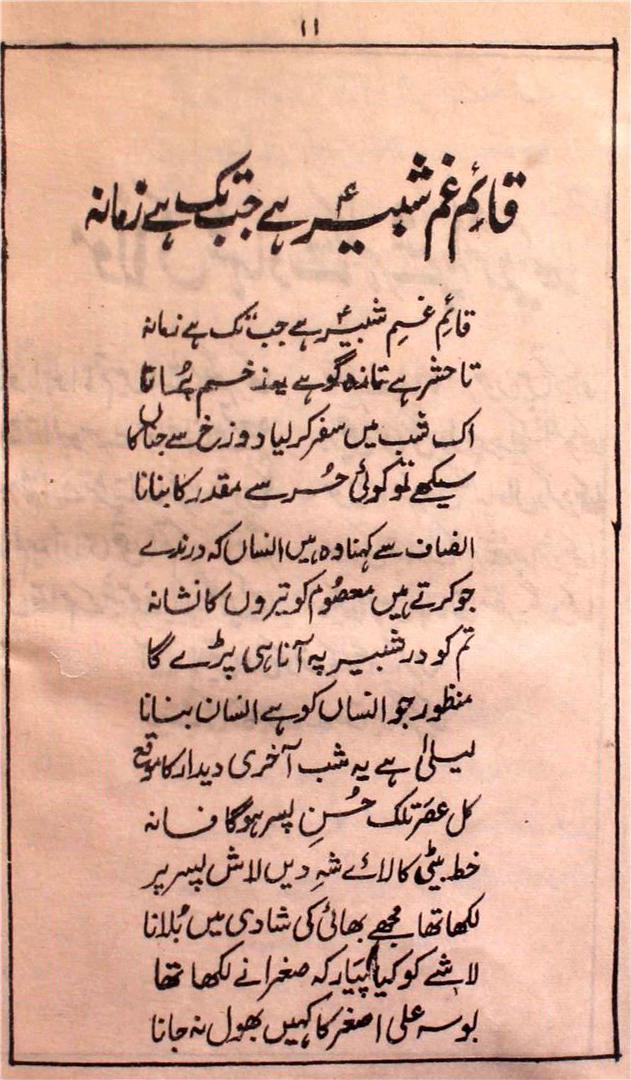 ۱۱
قائم غم شبیرؑ ہے جب تک ہے زمانہ
قائم غمِ شبیرؑ ہے جب تک ہے زمانہ
تا حشر ہے تازہ گو ہے یہ زخم پُرانا
اک شب میں سفر کر لیا دوزخ سے جناں کا
سیکھے تو کوئی حُر سے مقدر کا بنانا
انصاف سے کہنا وہ ہیں انساں کہ درندے
جو کرتے ہیں معصوم کو تیروں کا نشانہ
تم کو در شبیر پہ آنا ہی پڑے گا
منظور جو انساں کو ہے انسان بنانا
لیلیٰ ہے یہ شب آخری دیدار کا موقع
کل عصر تلک حُسنِ پسر ہوگا فسانہ
خط بیٹی کا لائے شہِ دیں لاش پسر پر
لکھا تھا مجھے بھائی کی شادی میں بُلانا
لاشے کو کیا پیار کہ صغرا نے لکھا تھا
بوسہ علی اصغر کا کہیں بھول نہ جانا